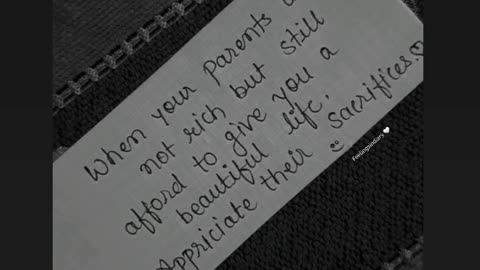 When your parents a
not rich but still
afford to give you a
beautiful life.
Appriciate their sacrifices.
Feelingsdiary